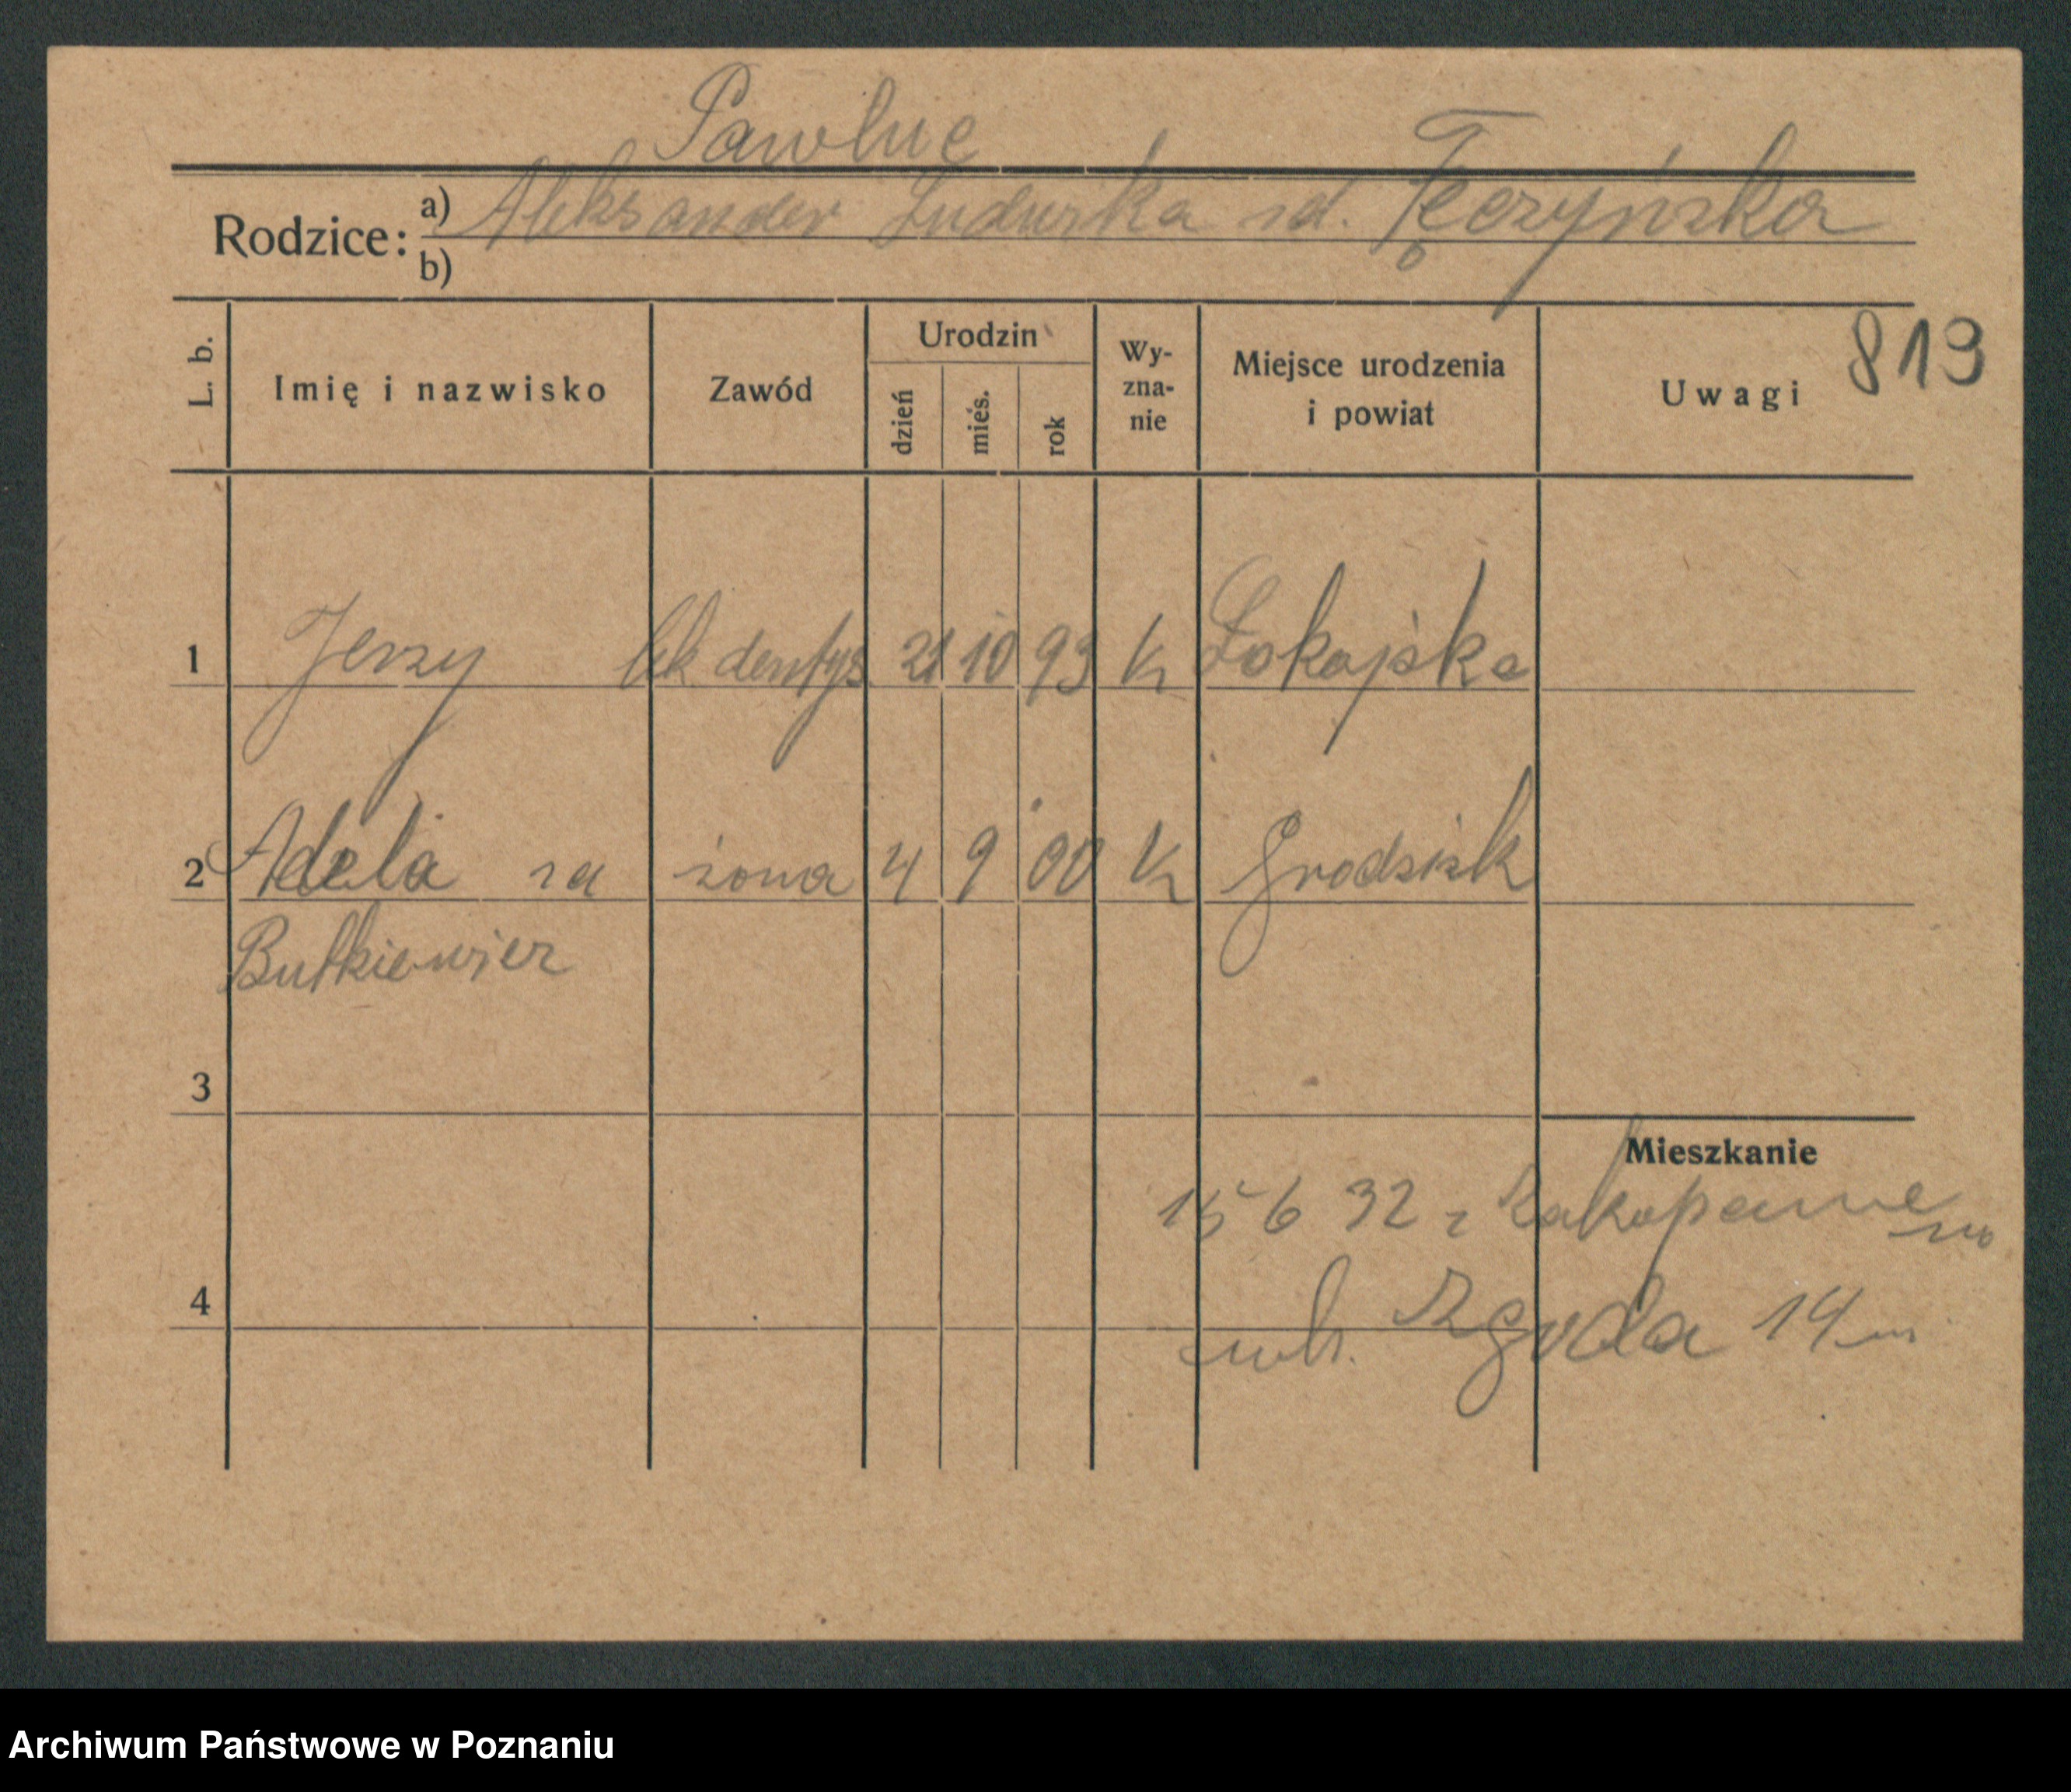 Pawluc
Rodzice: a) Aleksander Ludwika zd. Tęczyńska
b)
L. b. Imię i nazwisko Zawód Urodzin dzień mies. rok Wy-zna-nie Miejsce urodzenia i powiat Uwagi 819
1 Jerzy lek dentys. 21 10 93 K Łokajska
2 Adela za żona 4 9 00 K Grodzisk
Butkiewicz
3
Mieszkanie
15 6 32 z Zakopane
4
Zgoda 14 m.
Archiwum Państwowe w Poznaniu